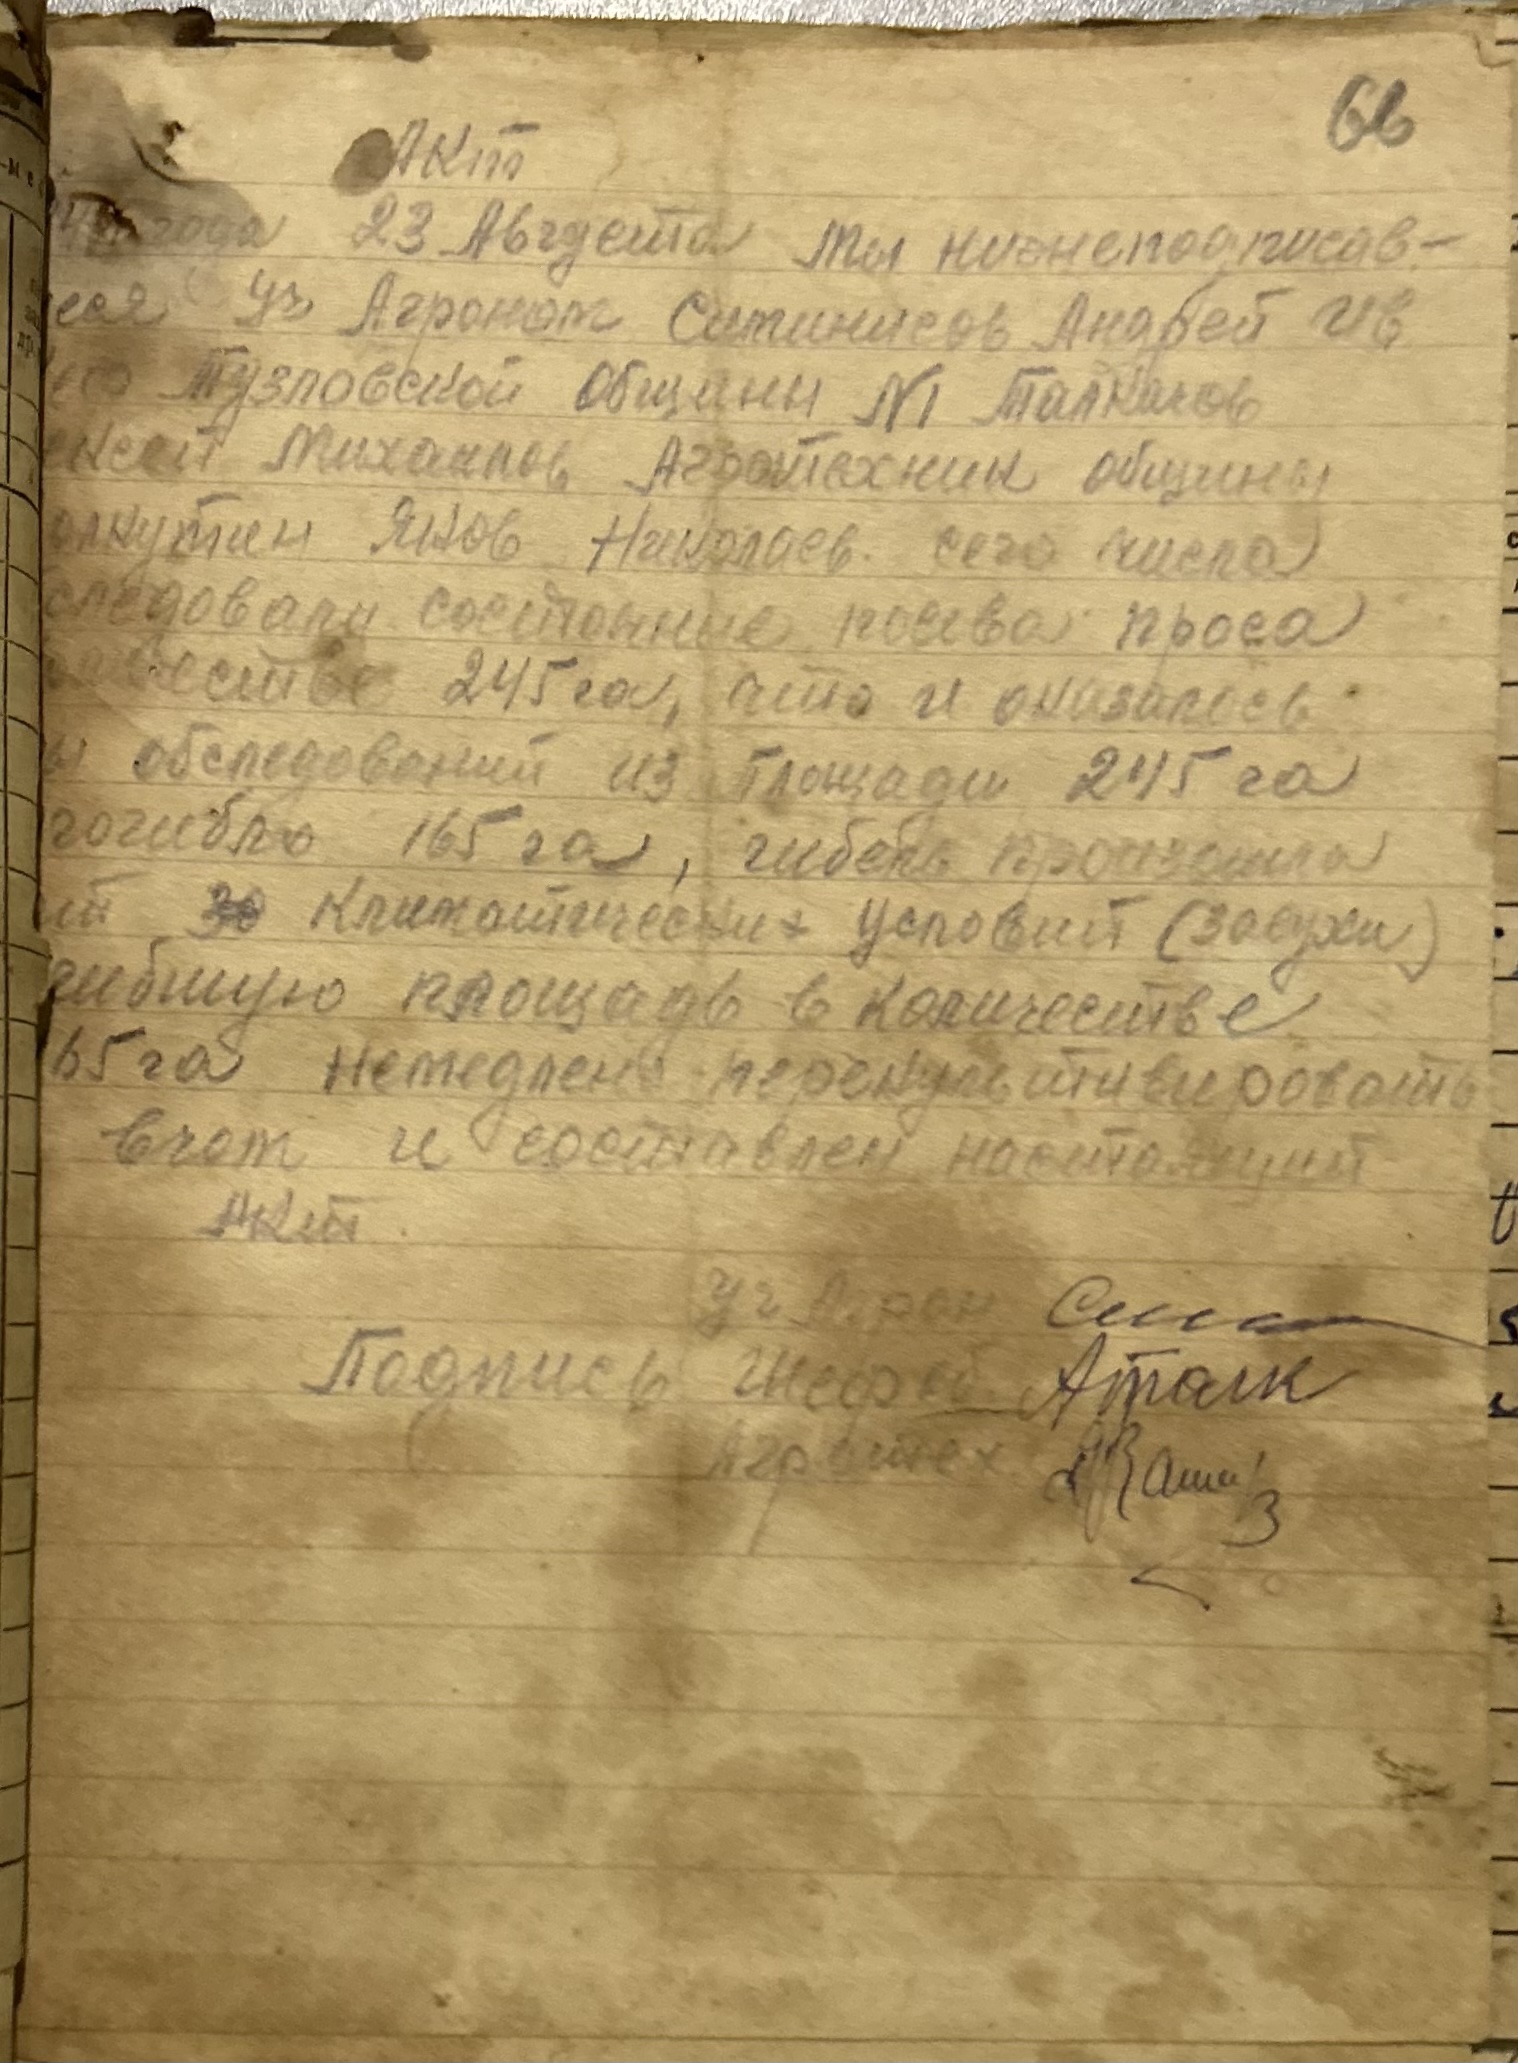 66
Акт
года 23 Августа мы нижеподписав-
еся Уч Агроном Андрей Ив
Тузловской Общины №1 Талкачов
ексей Михайлов Агротехник общины
олкутин Яков Николаев. сего числа
следовали состояние посева проса
честве 245 га, что и оказалось
ы обследований из площади 245 га
погибло 165 га, гибель произошла
от климатических условий (засухи)
гибшую площадь в количестве
65 га немедлено перекультивировать
вчом и составлен настоящий
Акт.
Уч Агрон
Подпись Шеф об. АТалк
Агротех